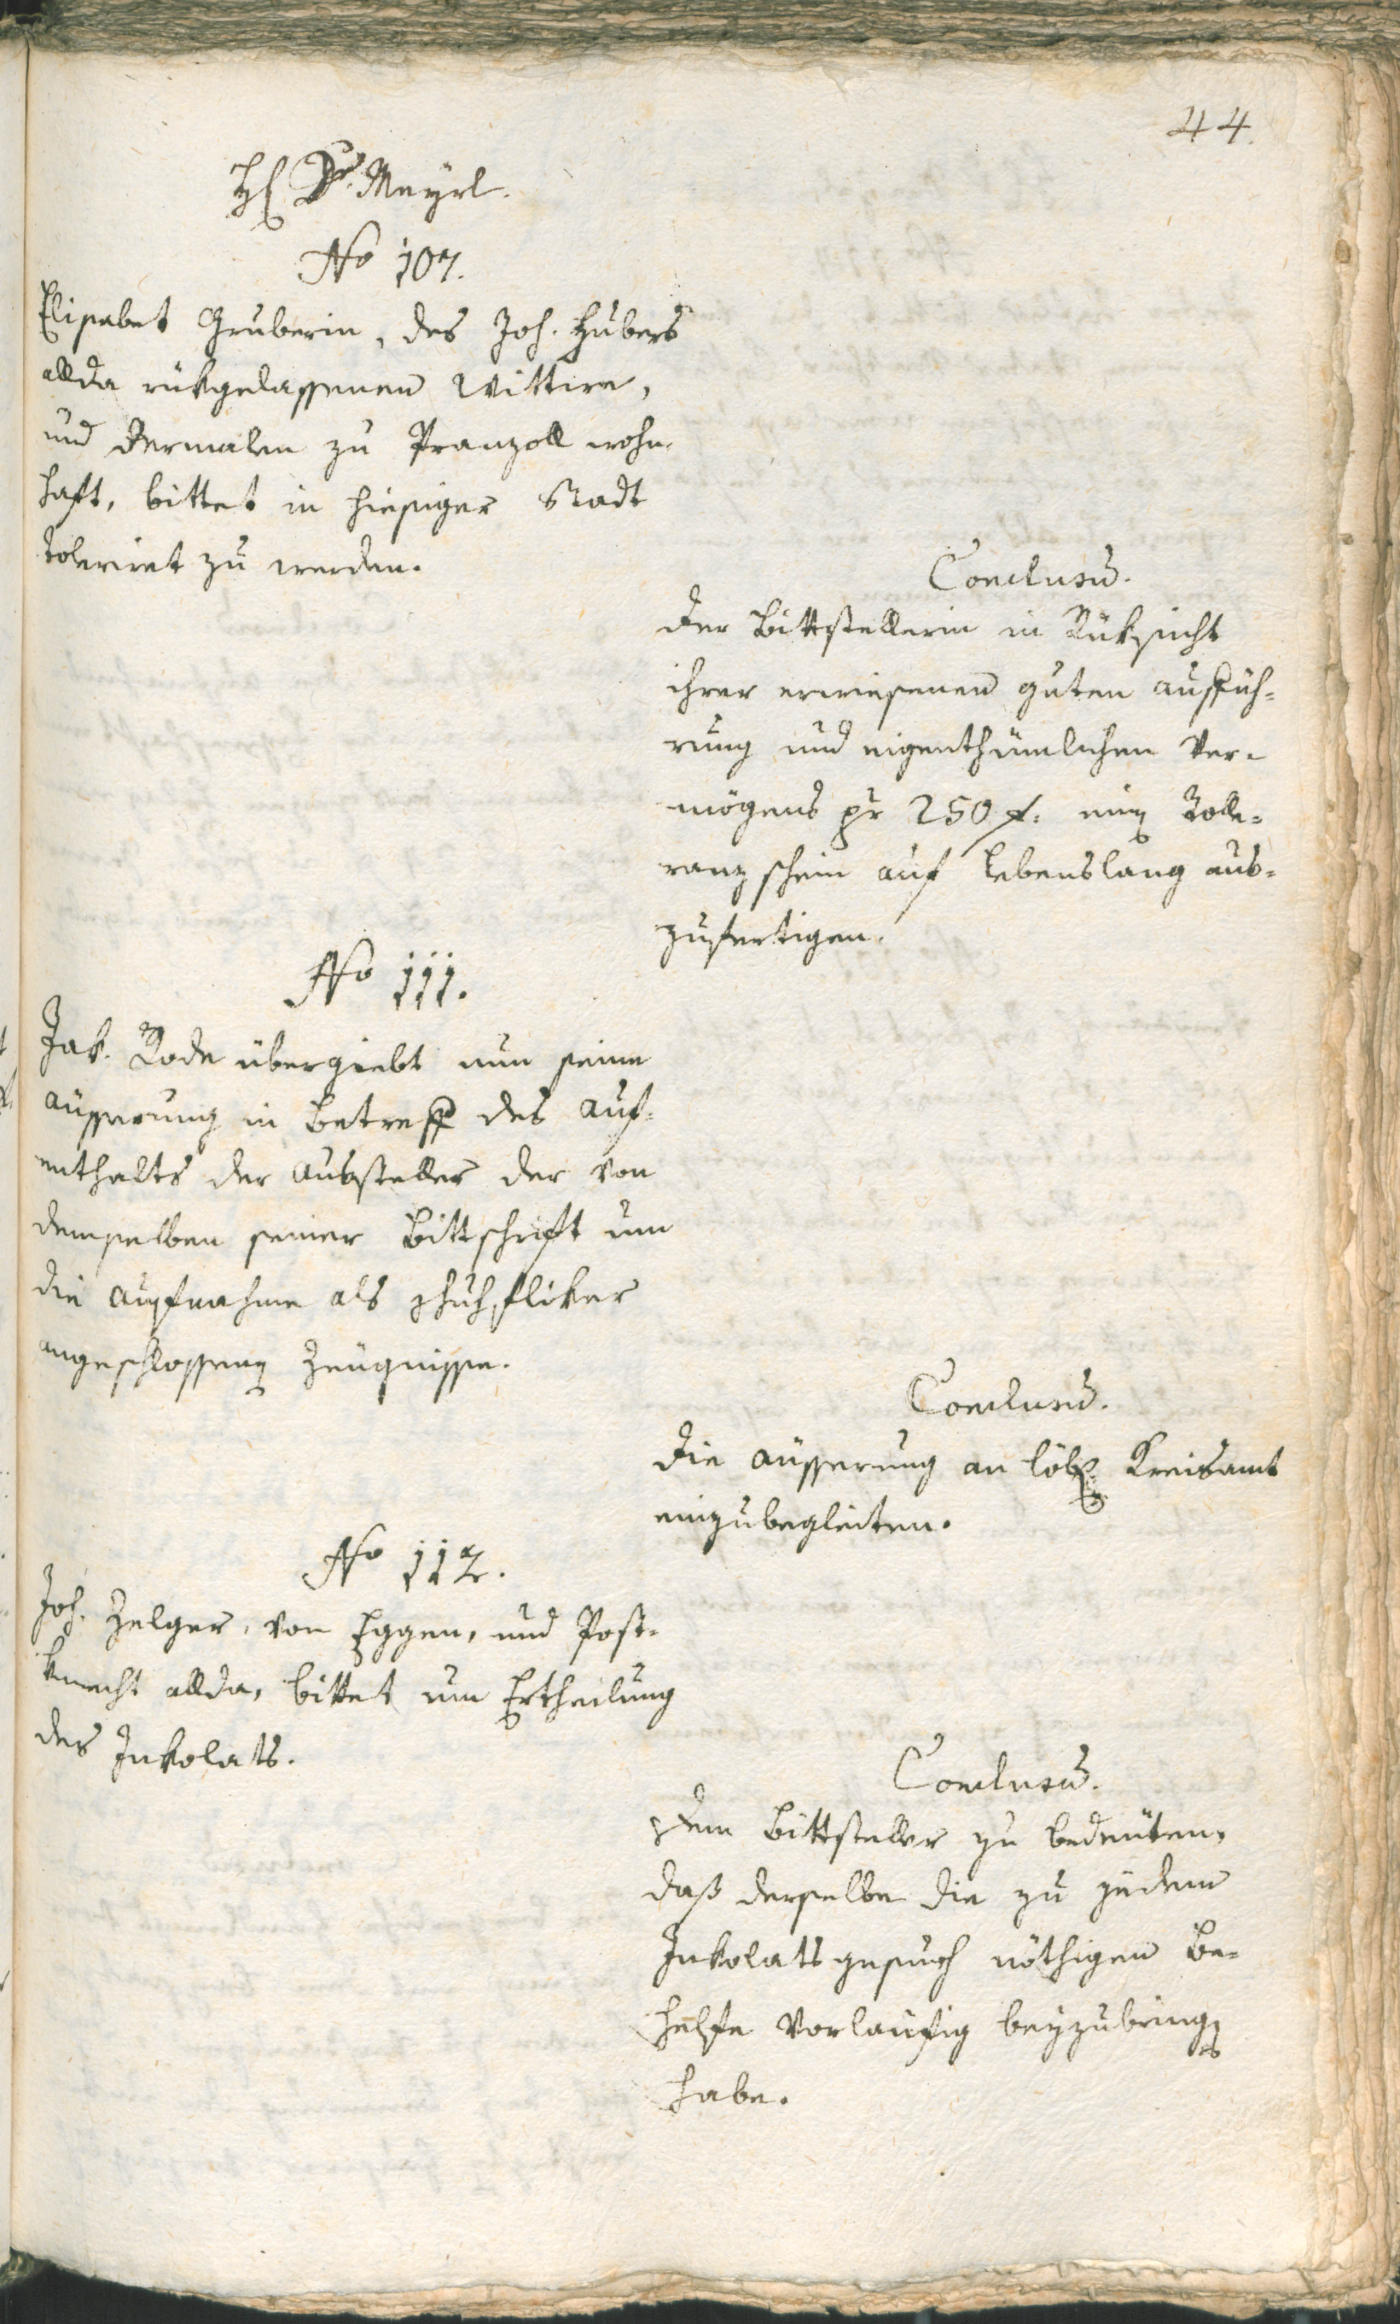 44.
H Dr. Mayrl.
No 107.
Elisabet Gruberin, des Joh. Hubers
allda rükgelassenen Wittwe,
und dermalen zu Pranzoll wohn-
haft, bittet in hiesiger Stadt
toleriret zu werden.
Conclusū.
Der Bittstellerin in Rüksicht
ihrer erwiesenen guten auffüh-
rung und eigenthümlichen Ver-
mögens pr 250 f. einen Tolle-
ranzschein auf Lebenslang aus-
zufertigen.
No 111.
Jak. Rode übergiebt nun seine
äusserung in Betreff des auf-
enthalts der aussteller der von
demselben seiner Bittschrift um
die aufnahme als Schuhfliker
angeschlossenen Zeugnisse.
Conclusū.
Die äusserung an löbl. Kreisamt
einzubegleiten.
No 112.
Joh. Zelger, von Eggen, und Post-
knecht allda, bittet um Ertheilung
des Inkolats.
Conclusū.
Dem Bittsteller zu bedeuten,
daß derselbe die zu jedem
Inkolatsgesuch nöthigen Be-
helfe vorläufig beyzubringen
habe.